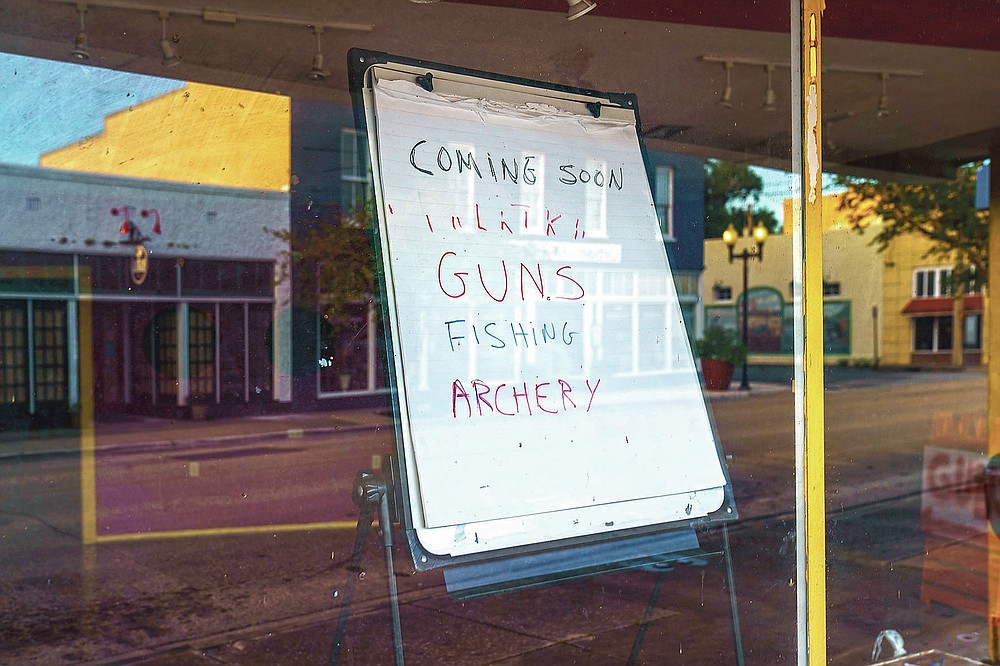 COMING SOON
GUNS
FISHING
ARCHERY